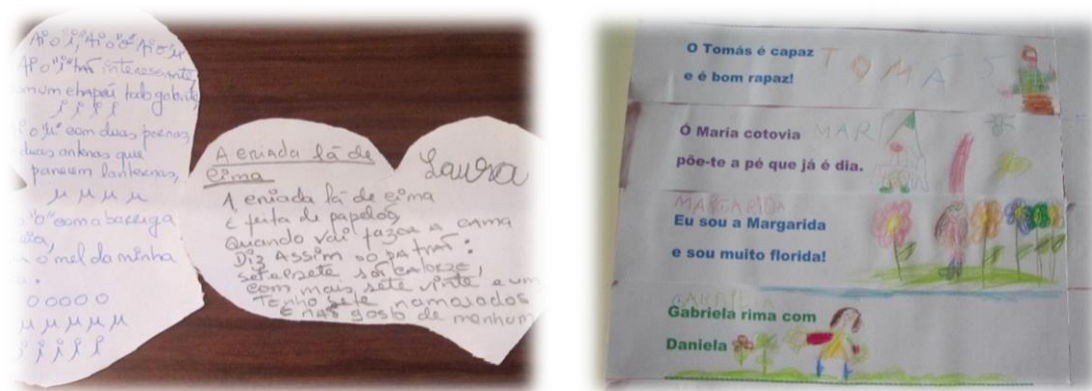 interessante
com duas pernas
duas antenas que
parecem lanternas,
μ μ μ μ μ
"o" com a barriga
o mel da minha
o o o o o
μ μ μ μ μ
A criada lá de
cima
Laura
A criada lá de cima
É feita de papelão
Quando vai fazer a cama
Diz Assim ao patrão:
sete e sete são catorze,
com mais sete vinte e um
Tenho sete namorados
E não gosto de nenhum
O Tomás é capaz
TOMÁS
e é bom rapaz!
Ó Maria cotovia
MARI
põe-te a pé que já é dia.
MARGARIDA
Eu sou a Margarida
e sou muito florida!
GABRIELA
Gabriela rima com
Daniela